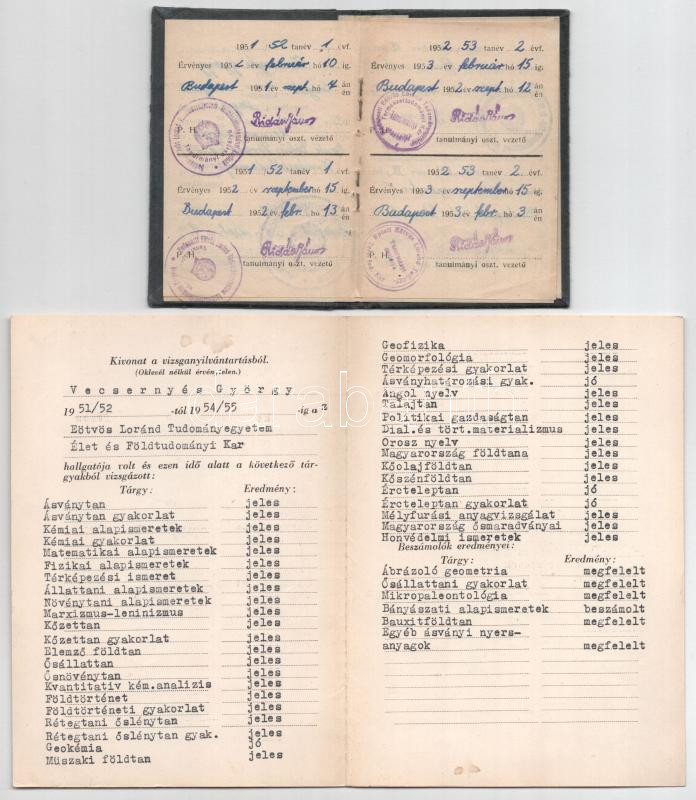 1951 52 tanév 1 évf.
Érvényes 1952 év február hó 10 ig.
Budapest 1951 év szept. hó 4 án én
P. H. Ridán János
tanulmányi oszt. vezető
1951 52 tanév 1 évf.
Érvényes 1952 év szeptember hó 15 ig
Budapest 1952 év febr. hó 13 án én
P. H. Ridán János
tanulmányi oszt. vezető
1952 53 tanév 2 évf.
Érvényes 1953 év február hó 15 ig.
Budapest 1952 év szept. hó 12 án én
P. H. Ridán János
tanulmányi oszt. vezető
1952 53 tanév 2 évf.
Érvényes 1953 év szeptember hó 15 ig.
Budapest 1953 év febr. hó 3 án én
P. H. Ridán János
tanulmányi oszt. vezető
Kivonat a vizsganyilvántartásból.
(Oklevél nélkül érvénytelen.)
Vecsernyés György
1951/52 -től 1954/55 -ig az
Eötvös Loránd Tudományegyetem
Élet és Földtudományi Kar
hallgatója volt és ezen idő alatt a következő tár-
gyakból vizsgázott:
Tárgy: Eredmény:
Ásványtan jeles
Ásványtan gyakorlat jeles
Kémiai alapismeretek jeles
Kémiai gyakorlat jeles
Matematikai alapismeretek jeles
Fizikai alapismeretek jeles
Térképezési ismeret jeles
Állattani alapismeretek jeles
Növénytani alapismeretek jeles
Marxizmus-leninizmus jeles
Kőzettan jeles
Kőzettan gyakorlat jeles
Elemző földtan jeles
Ősállattan jeles
Ősnövénytan jeles
Kvantitativ kém.analizis jeles
Földtörténet jeles
Földtörténeti gyakorlat jeles
Rétegtani őslénytan jeles
Rétegtani őslénytan gyak. jeles
Geokémia jó
Müszaki földtan jeles
Geofizika jeles
Geomorfológia jeles
Térképezési gyakorlat jeles
Ásványhatározási gyak. jó
Angol nyelv jeles
Talajtan jeles
Politikai gazdaságtan jeles
Dial.és tört.materializmus jeles
Orosz nyelv jeles
Magyarország földtana jeles
Kőolajföldtan jeles
Kőszénföldtan jeles
Ércteleptan jó
Ércteleptan gyakorlat jó
Mélyfurási anyagvizsgálat jeles
Magyarország ősmaradványai jeles
Honvédelmi ismeretek jeles
Beszámolók eredményei:
Tárgy: Eredmény:
Ábrázoló geometria megfelelt
Ősállattani gyakorlat megfelelt
Mikropaleontológia megfelelt
Bányászati alapismeretek beszámolt
Bauxitföldtan megfelelt
Egyéb ásványi nyers-
anyagok megfelelt